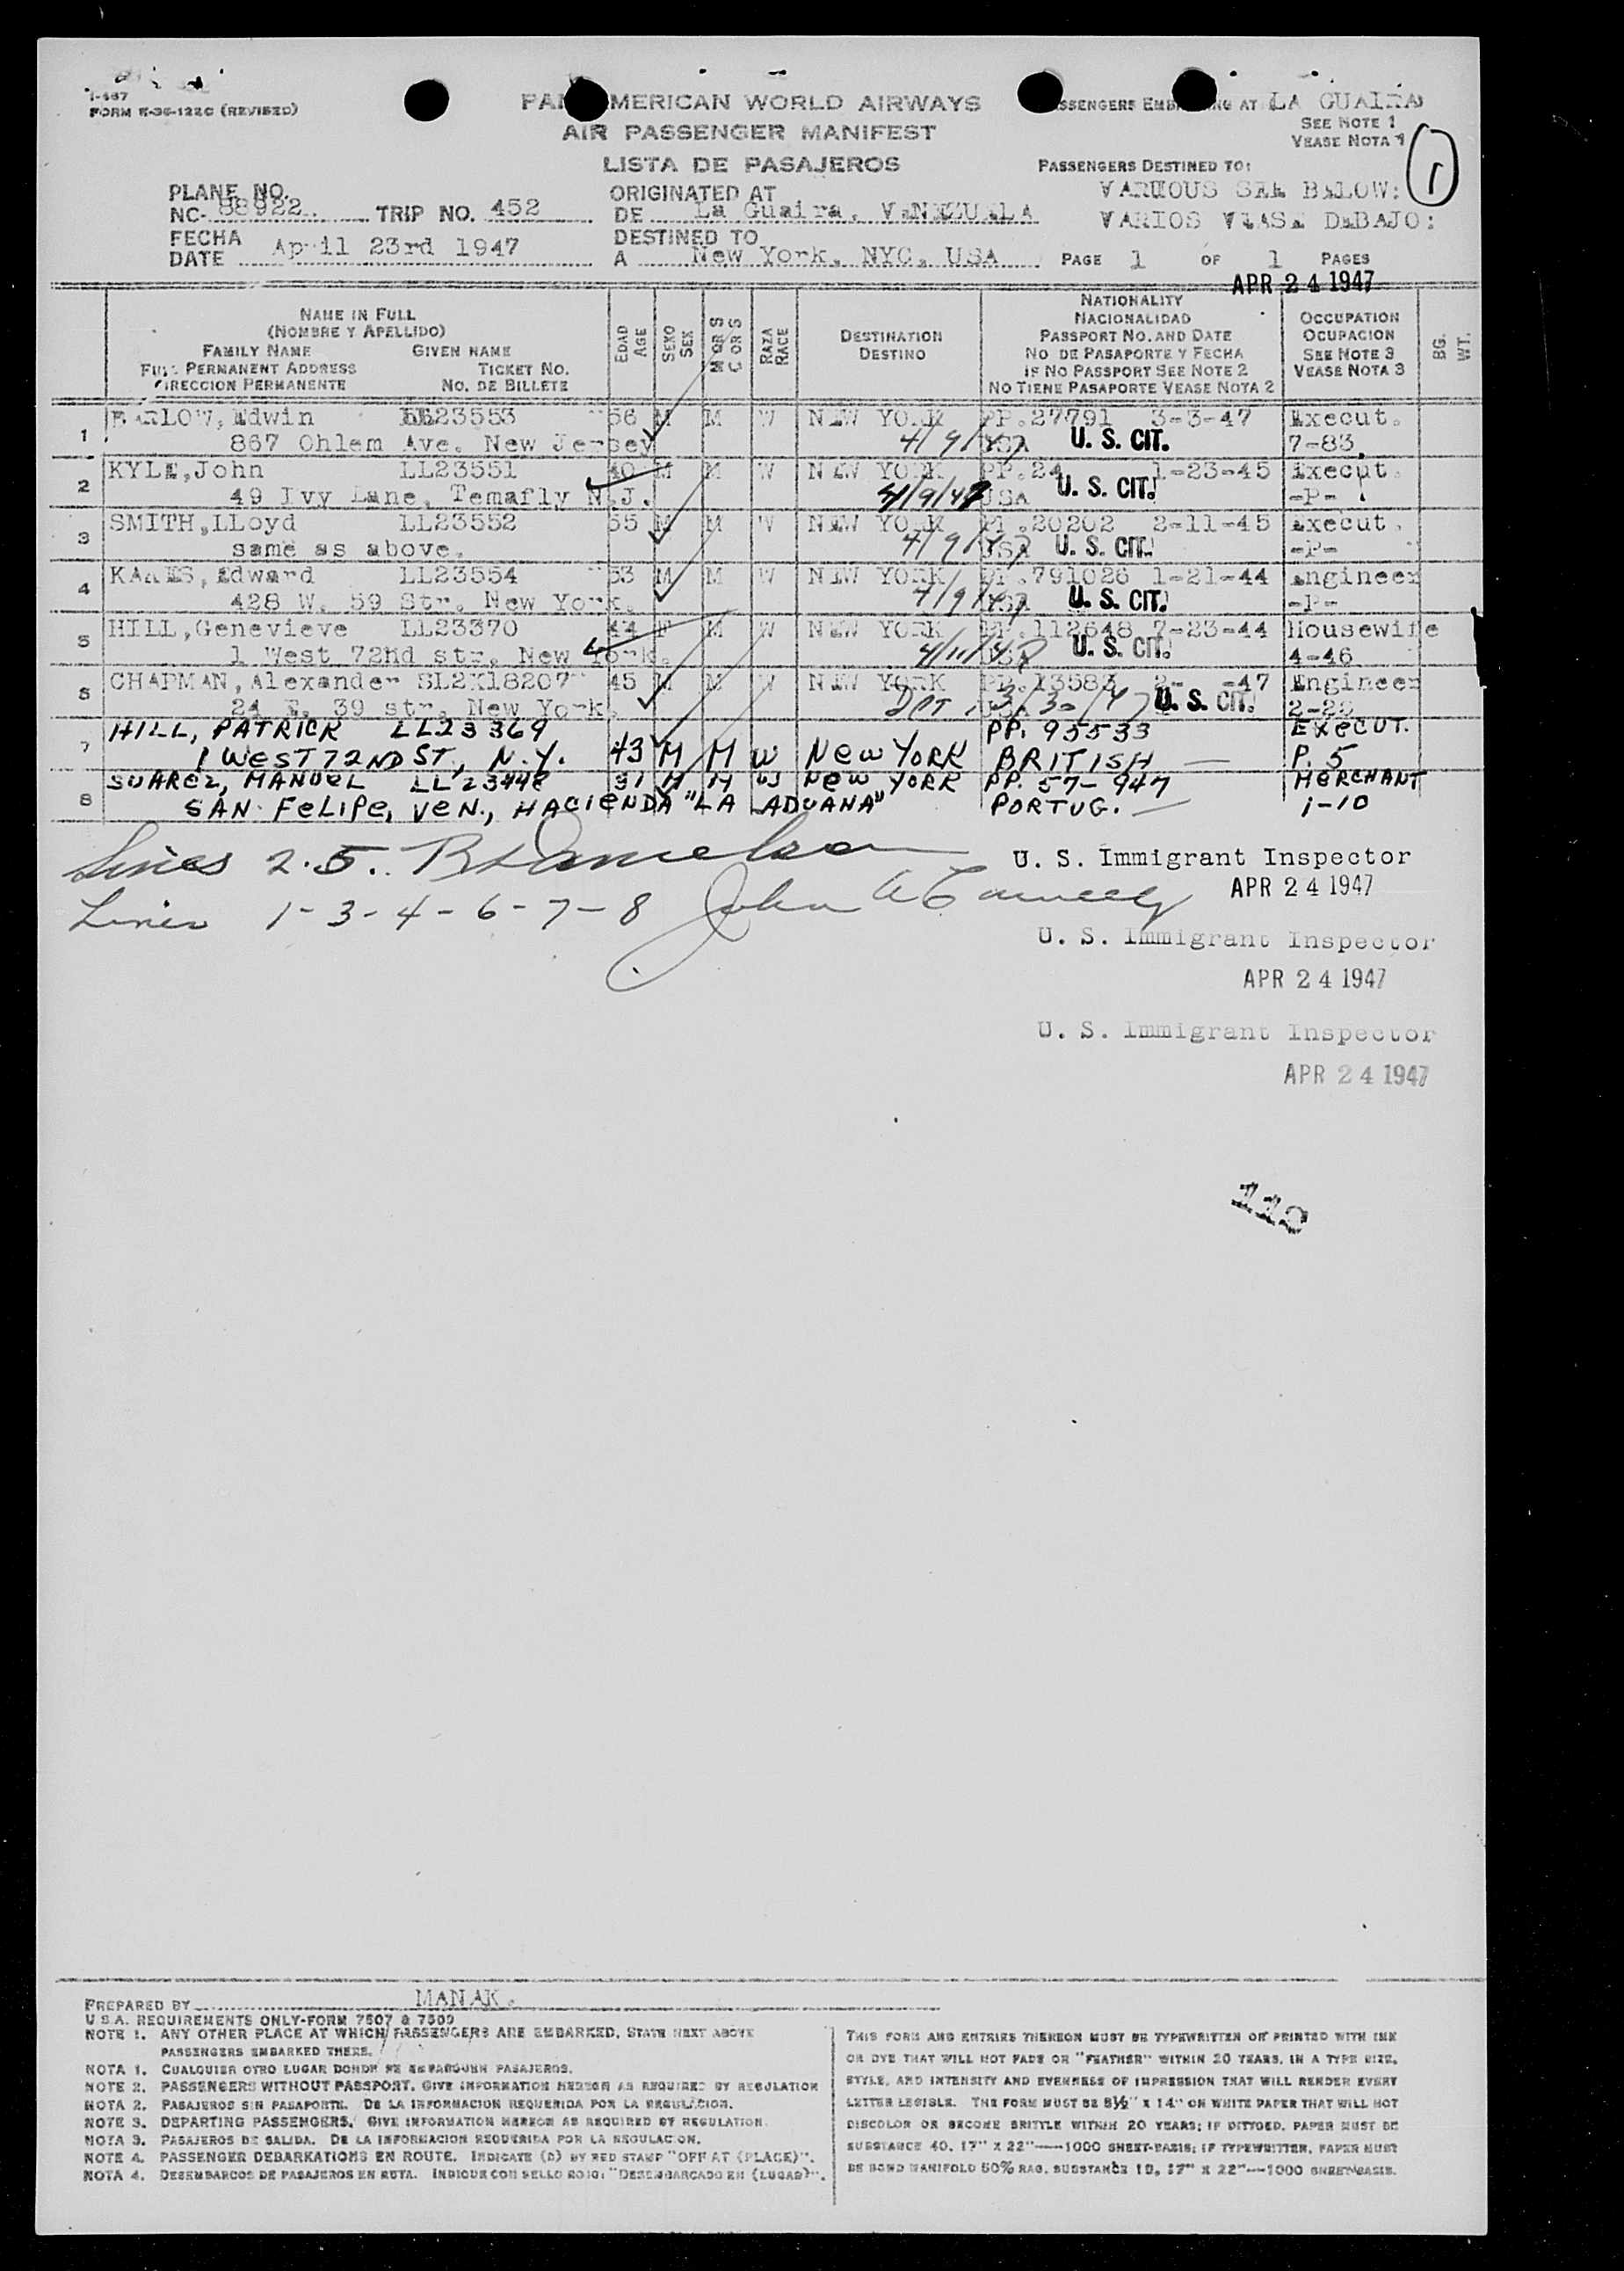 I-467
FORM E-36-122C (REVISED)
PAN AMERICAN WORLD AIRWAYS
AIR PASSENGER MANIFEST
LISTA DE PASAJEROS
PASSENGERS EMBARKING AT LA GUAIRA
SEE NOTE 1
VEASE NOTA 1
1
PASSENGERS DESTINED TO:
VARIOUS SEE BELOW:
VARIOS VEASE DEBAJO:
PLANE NO.
NC- 88922 TRIP NO. 452
ORIGINATED AT
DE La Guaira, VENEZUELA
FECHA
DATE April 23rd 1947
DESTINED TO
A New York, NYC, USA
PAGE 1 OF 1 PAGES
APR 24 1947
NAME IN FULL
(NOMBRE Y APELLIDO)
FAMILY NAME GIVEN NAME
FULL PERMANENT ADDRESS TICKET NO.
DIRECCION PERMANENTE NO. DE BILLETE
EDAD AGE
SEXO SEX
M OR S C OR S
RAZA RACE
DESTINATION
DESTINO
NATIONALITY
NACIONALIDAD
PASSPORT NO. AND DATE
NO DE PASAPORTE Y FECHA
IF NO PASSPORT SEE NOTE 2
NO TIENE PASAPORTE VEASE NOTA 2
OCCUPATION
OCUPACION
SEE NOTE 3
VEASE NOTA 3
BG. WT.
1 BARLOW, Edwin LL23553 56 M M W NEW YORK PP.27791 3-3-47 Execut.
867 Ohlem Ave. New Jersey 4/9/47 USA U. S. CIT. 7-83
2 KYLE, John LL23551 40 M M W NEW YORK PP.24 1-23-45 Execut.
49 Ivy Lane, Temafly N.J. 4/9/47 USA U. S. CIT. -P-
3 SMITH, LLoyd LL23552 55 M M W NEW YORK PP.20202 2-11-45 Execut.
same as above. 4/9/47 USA U. S. CIT. -P-
4 KARES, Edward LL23554 53 M M W NEW YORK PP.791026 1-21-44 Engineer
428 W. 59 Str. New York. 4/9/47 USA U. S. CIT. -P-
5 HILL, Genevieve LL23370 44 F M W NEW YORK PP.112648 7-23-44 Housewife
1 West 72nd str. New York. 4/11/47 USA U. S. CIT. 4-46
6 CHAPMAN, Alexander SL2X18207 45 M M W NEW YORK PP.13583 2- -47 Engineer
24 E. 39 str. New York. DPT. 3/30/47 U. S. CIT.
7 HILL, PATRICK LL23369 PP. 95533 EXECUT.
1 WEST 72ND ST., N.Y. 43 M M W NEW YORK BRITISH — P. 5
8 SUAREZ, MANUEL LL23448 31 M M W NEW YORK PP. 57-947 MERCHANT
SAN FELIPE, VEN., HACIENDA "LA ADUANA" PORTUG. — 1-10
Lines 2.5.
U. S. Immigrant Inspector
APR 24 1947
Lines 1-3-4-6-7-8 John A
U. S. Immigrant Inspector
APR 24 1947
U. S. Immigrant Inspector
APR 24 1947
110
PREPARED BY MANAK.
U S A. REQUIREMENTS ONLY-FORM 7507 & 7509
NOTE 1. ANY OTHER PLACE AT WHICH PASSENGERS ARE EMBARKED, STATE NEXT ABOVE
PASSENGERS EMBARKED THERE.
NOTA 1. CUALQUIER OTRO LUGAR DONDE SE EMBARQUEN PASAJEROS.
NOTE 2. PASSENGERS WITHOUT PASSPORT. GIVE INFORMATION HEREON AS REQUIRED BY REGULATION
NOTA 2. PASAJEROS SIN PASAPORTE. DE LA INFORMACION REQUERIDA POR LA REGULACION.
NOTE 3. DEPARTING PASSENGERS. GIVE INFORMATION HEREON AS REQUIRED BY REGULATION.
NOTA 3. PASAJEROS DE SALIDA. DE LA INFORMACION REQUERIDA POR LA REGULACION.
NOTE 4. PASSENGER DEBARKATIONS EN ROUTE. INDICATE (D) BY RED STAMP "OFF AT (PLACE)".
NOTA 4. DESEMBARCOS DE PASAJEROS EN RUTA. INDIQUE CON SELLO ROJO: "DESEMBARCADO EN (LUGAR)".
THIS FORM AND ENTRIES THEREON MUST BE TYPEWRITTEN OR PRINTED WITH INK
OR DYE THAT WILL NOT FADE OR "FEATHER" WITHIN 20 YEARS, IN A TYPE SIZE,
STYLE, AND INTENSITY AND EVENNESS OF IMPRESSION THAT WILL RENDER EVERY
LETTER LEGIBLE. THE FORM MUST BE 8½" X 14" ON WHITE PAPER THAT WILL NOT
DISCOLOR OR BECOME BRITTLE WITHIN 20 YEARS; IF DITTOED, PAPER MUST BE
SUBSTANCE 40, 17" X 22"—1000 SHEET-BASIS; IF TYPEWRITTEN, PAPER MUST
BE BOND MANIFOLD 50% RAG, SUBSTANCE 18, 17" X 22"—1000 SHEET BASIS.